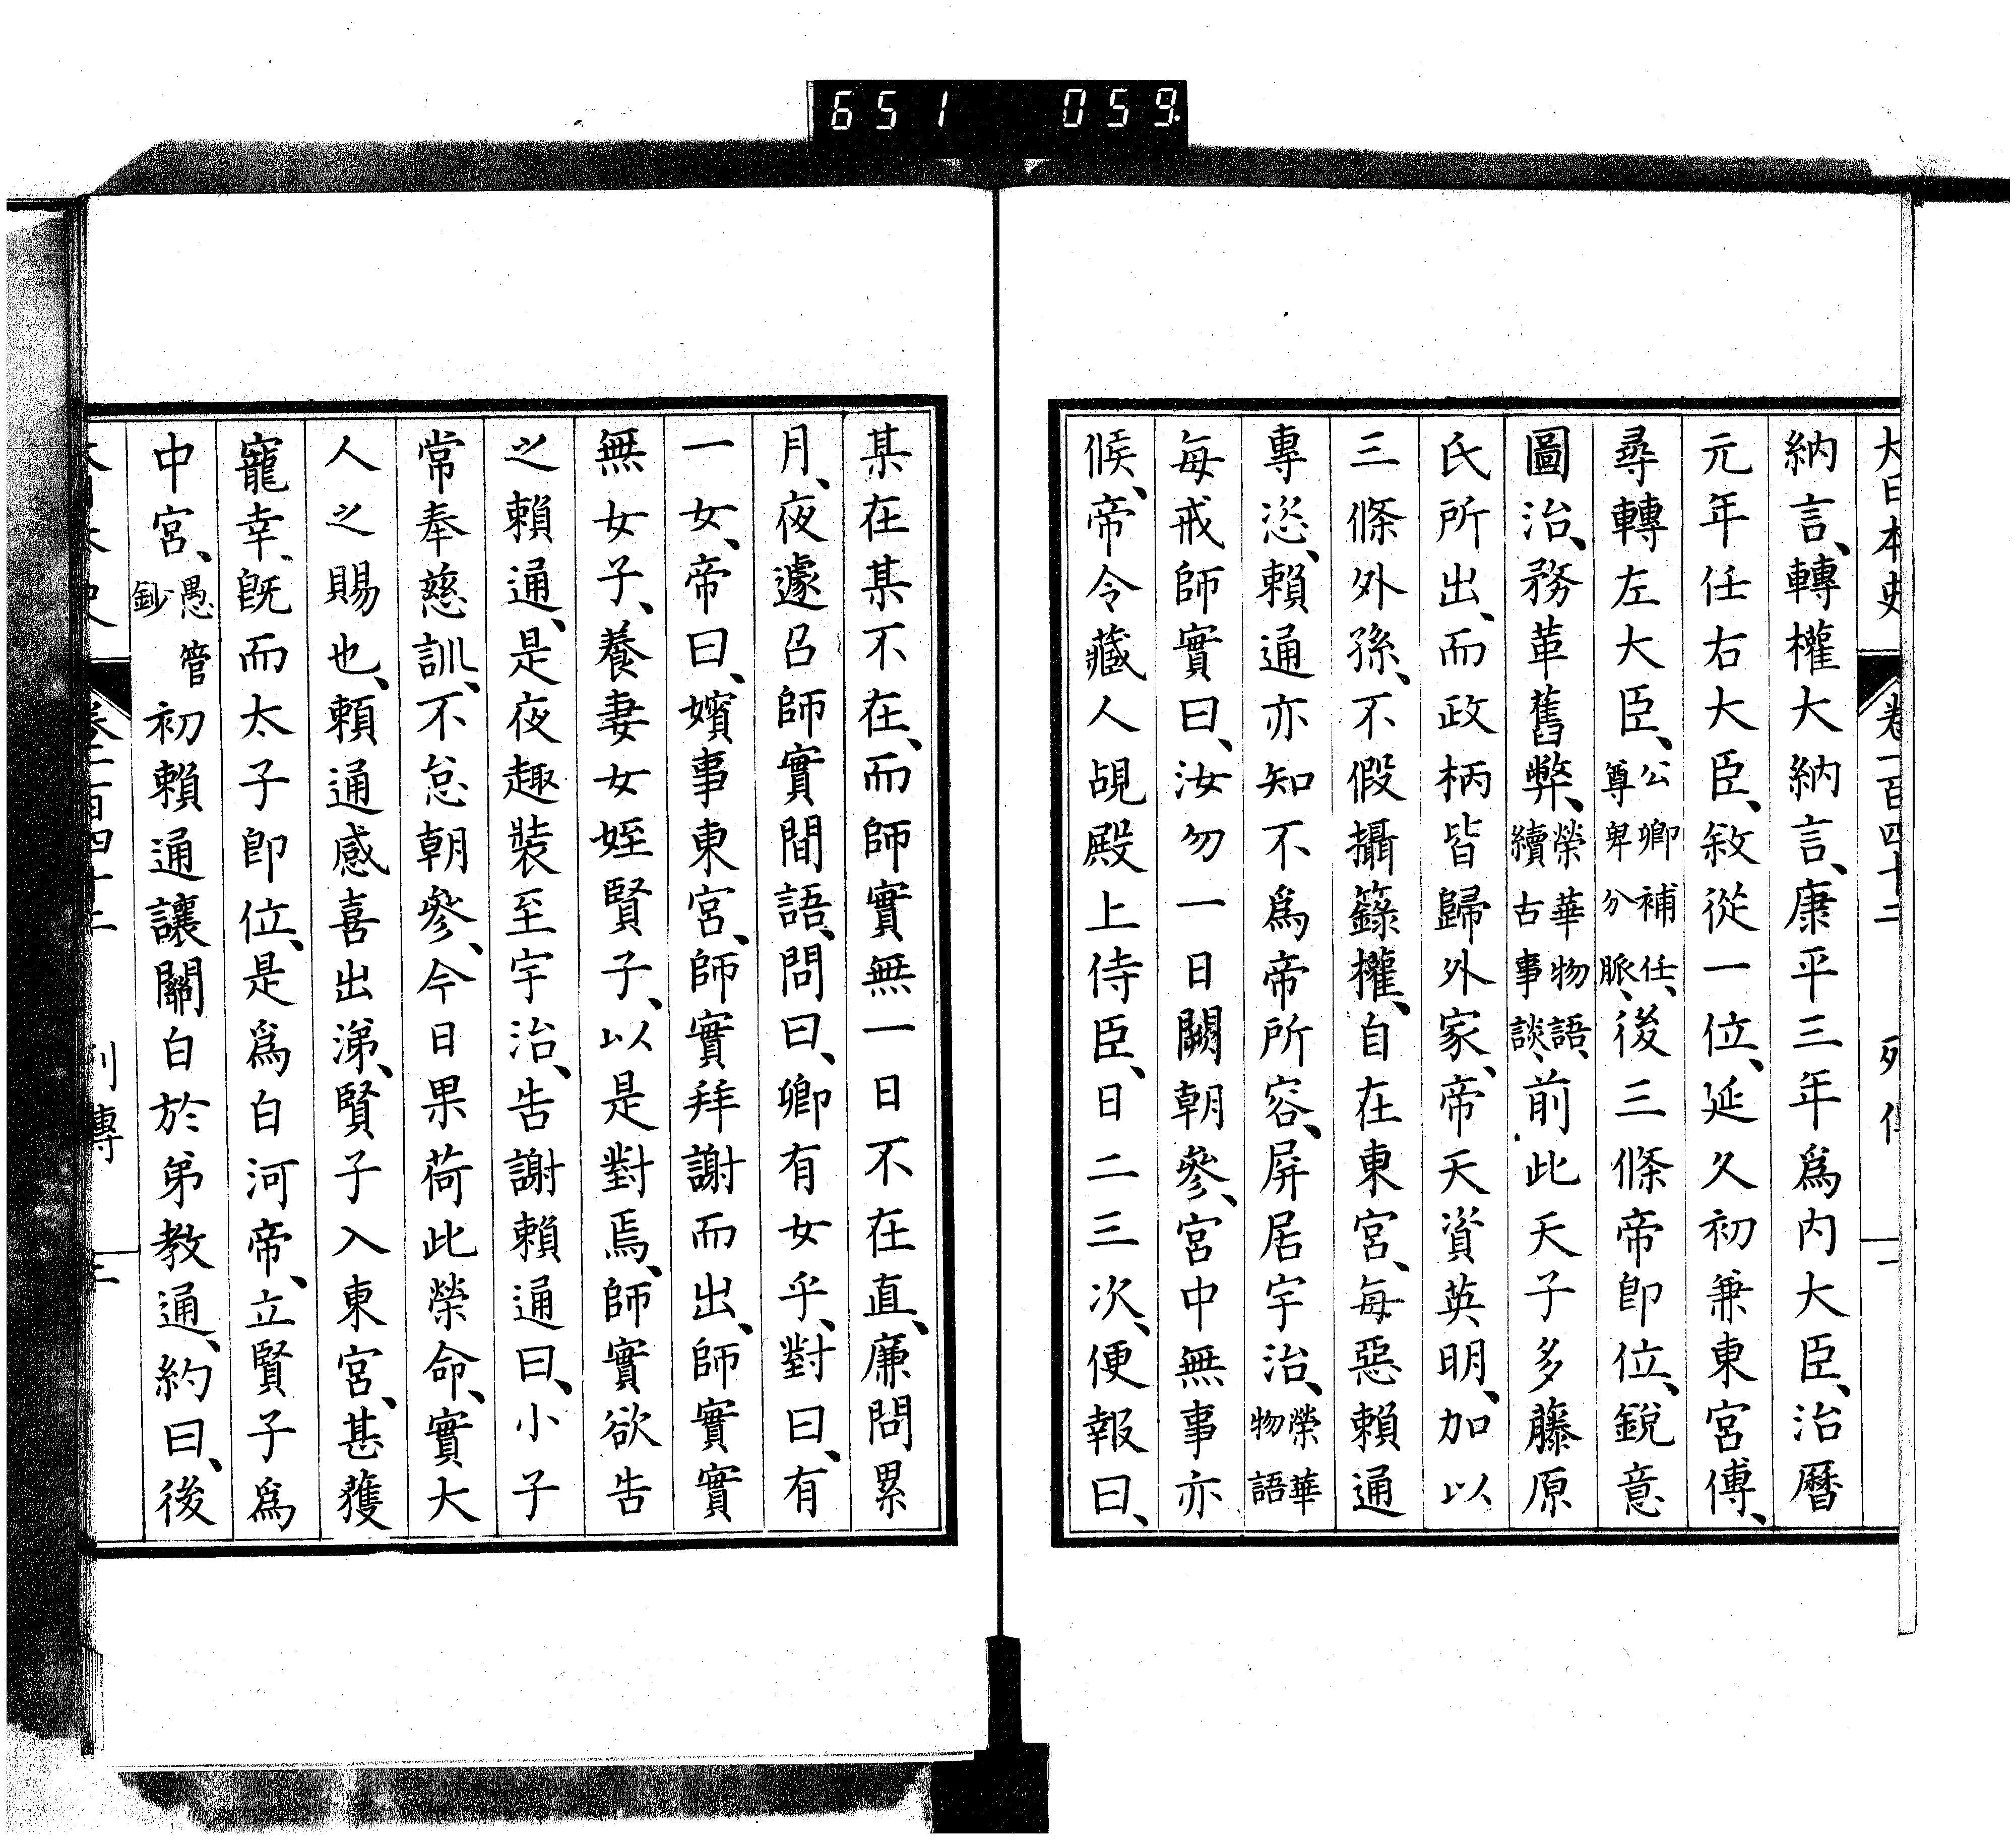 651 059
大日本史 卷一百四十二 列傳 二
納言、轉權大納言、康平三年爲内大臣、治曆
元年任右大臣、敘從一位、延久初兼東宮傅、
尋轉左大臣、公卿補任、尊卑分脈、後三條帝卽位、銳意
圖治、務革舊弊、榮華物語、續古事談、前此天子多藤原
氏所出、而政柄皆歸外家、帝天資英明、加以
三條外孫、不假攝籙權、自在東宮、每惡賴通
專恣、賴通亦知不爲帝所容、屏居宇治、榮華物語
每戒師實曰、汝勿一日闕朝參、宮中無事亦
候、帝令藏人覘殿上侍臣、日二三次、便報曰、
某在某不在、而師實無一日不在直、廉問累
月、夜遽召師實間語、問曰、卿有女乎、對曰、有
一女、帝曰、嬪事東宮、師實拜謝而出、師實實
無女子、養妻女姪賢子、以是對焉、師實欲告
之賴通、是夜趣裝至宇治、告謝賴通曰、小子
常奉慈訓、不怠朝參、今日果荷此榮命、實大
人之賜也、賴通感喜出涕、賢子入東宮、甚獲
寵幸、旣而太子卽位、是爲白河帝、立賢子爲
中宮、愚管鈔 初賴通讓關白於弟教通、約曰、後